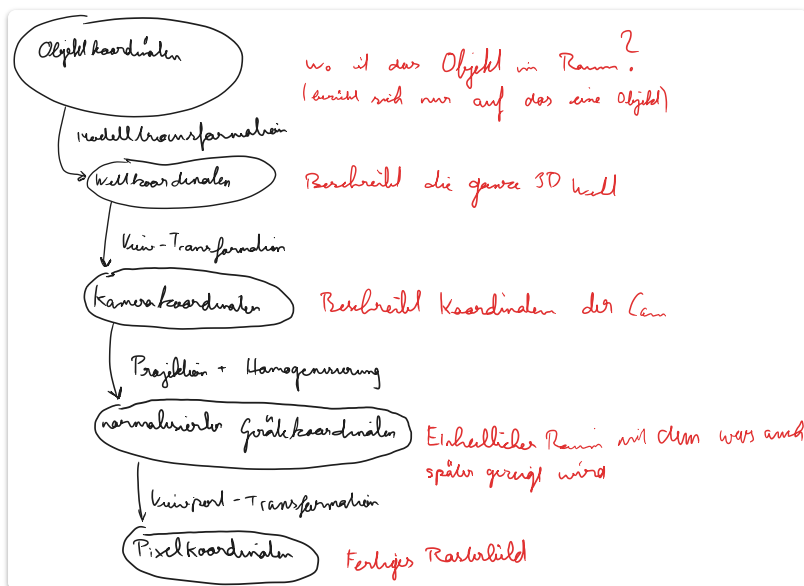 Objektkoordinaten
Wo ist das Objekt im Raum?
(bezieht sich nur auf das eine Objekt)
Modelltransformation
Weltkoordinaten
Beschreibt die ganze 3D Welt
View-Transformation
Kamerakoordinaten
Beschreibt Koordinaten der Cam
Projektion + Homogenisierung
normalisierter Gerätekoordinaten
Einheitlicher Raum mit dem was auch
später gezeigt wird
Viewport-Transformation
Pixelkoordinaten
Fertiges Rasterbild